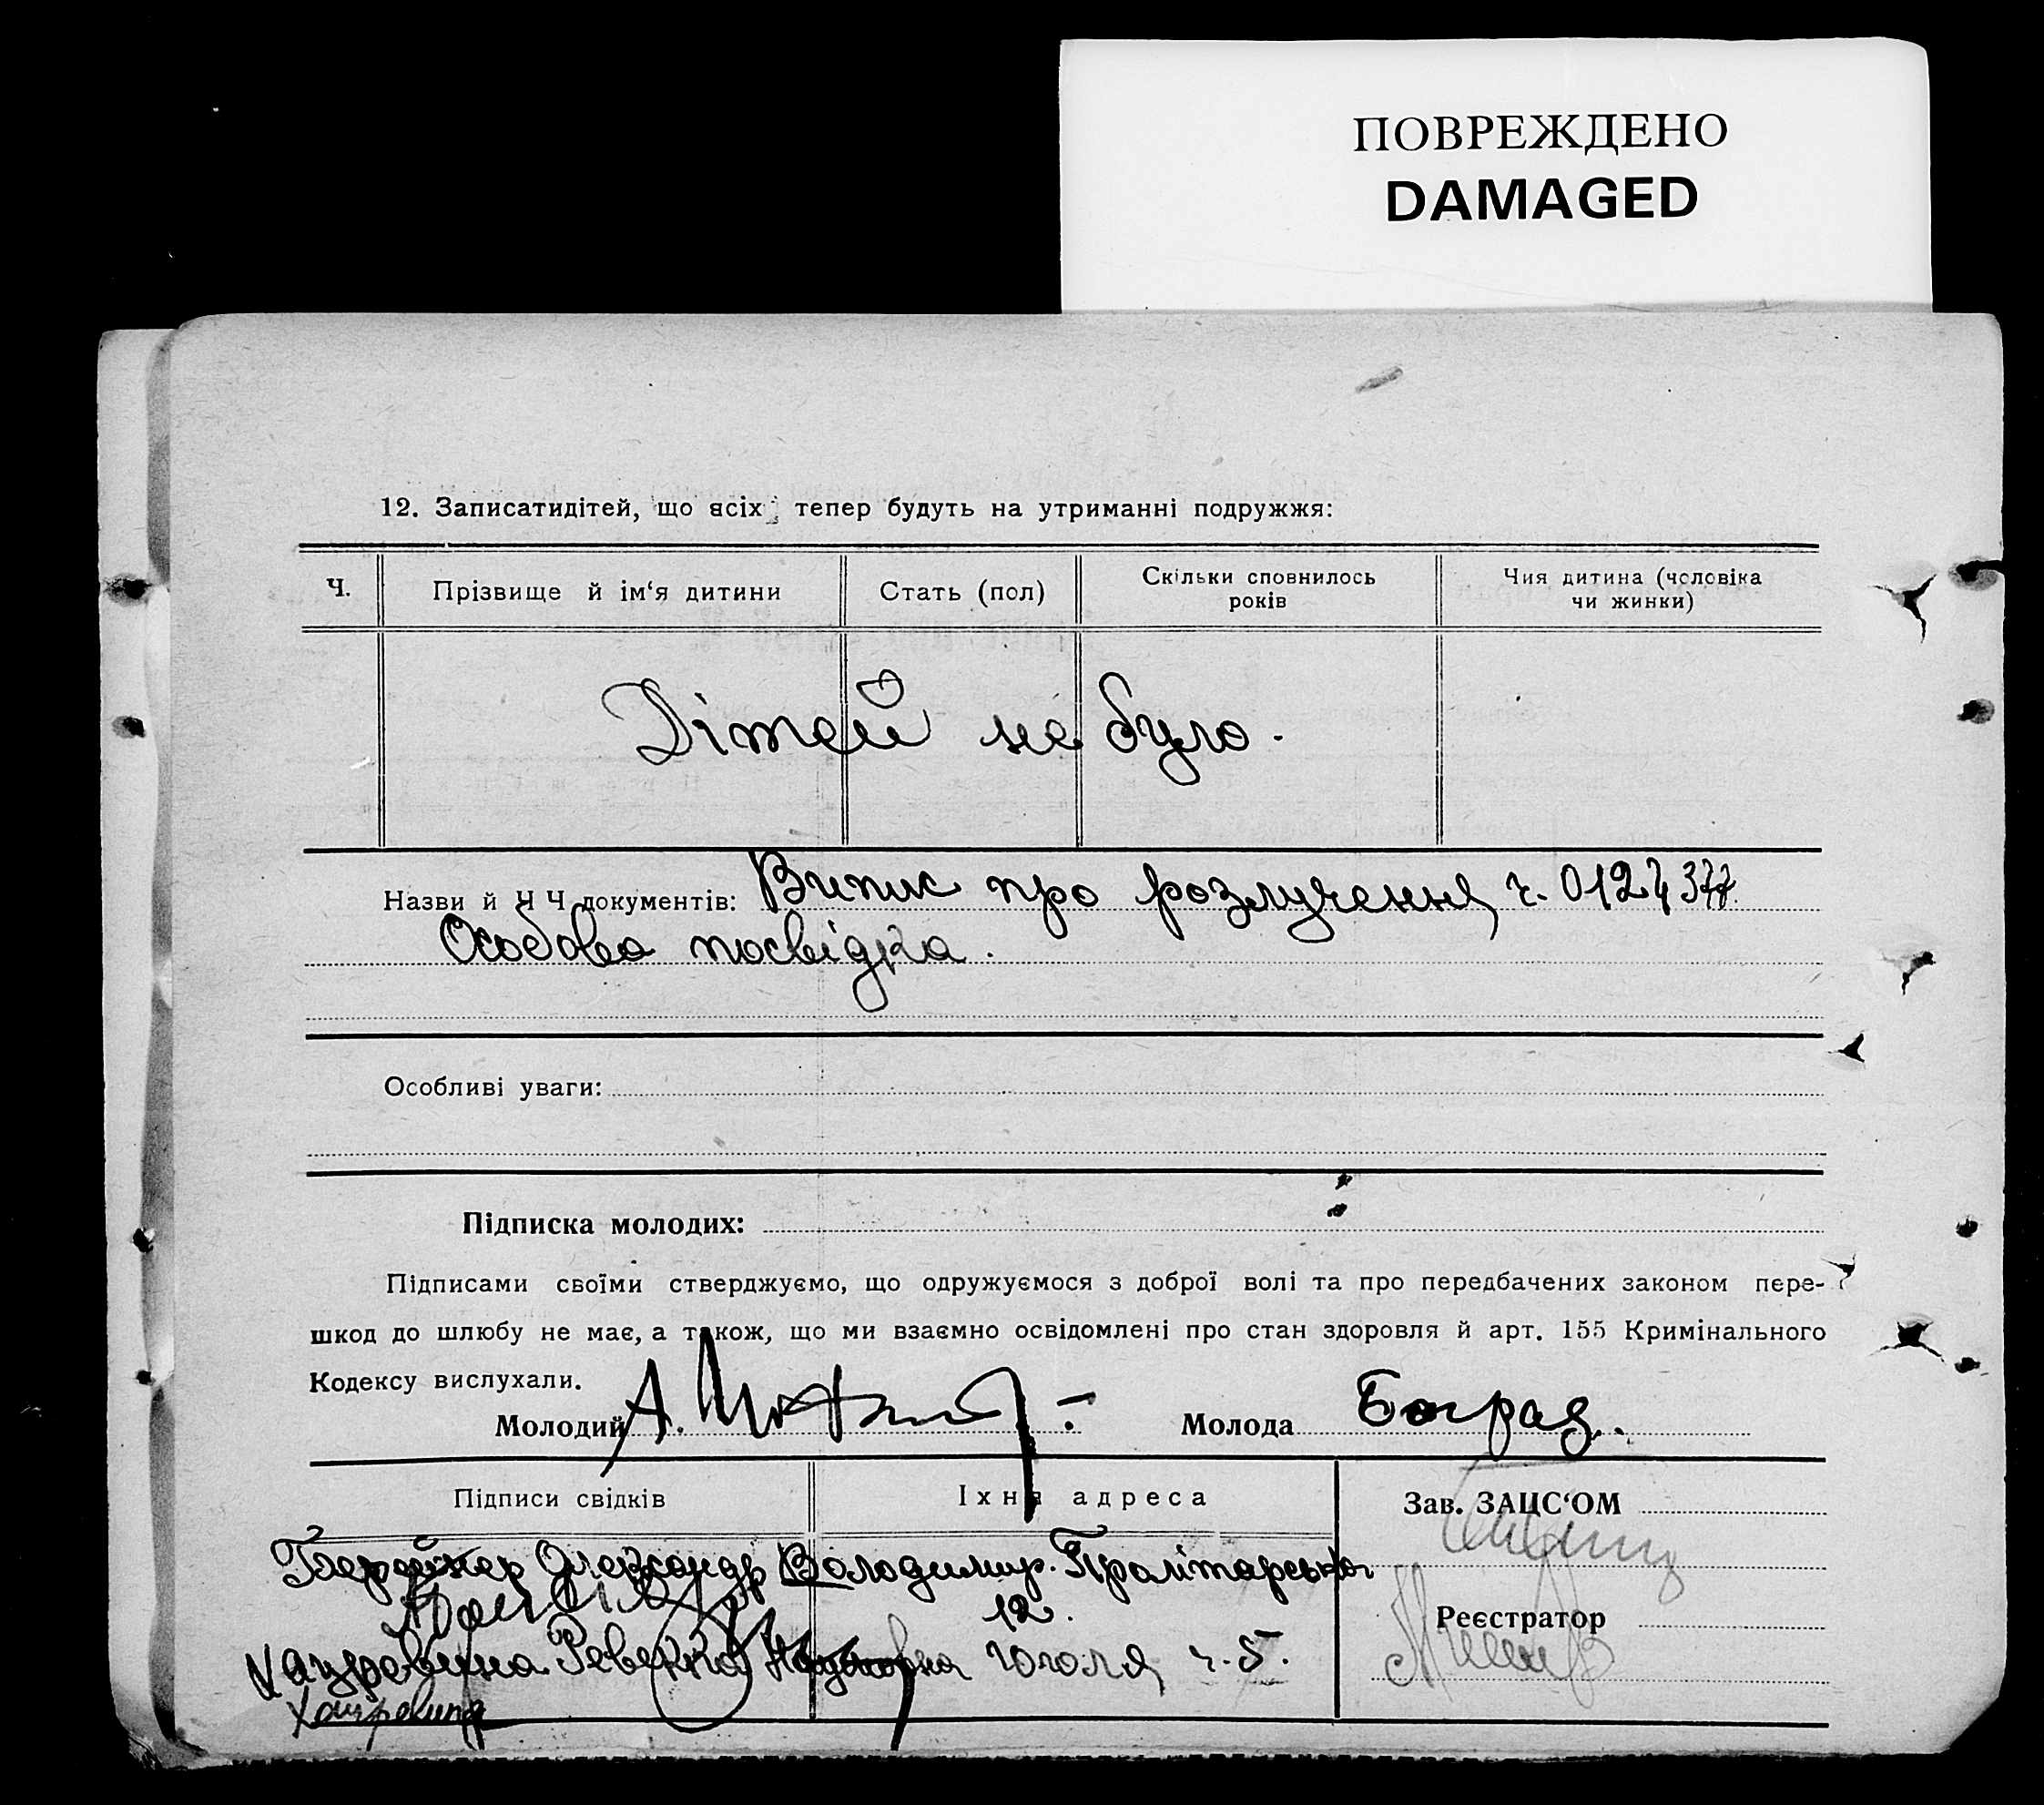 ПОВРЕЖДЕНО
DAMAGED
12. Записатидітей, що всіх тепер будуть на утриманні подружжя:
Ч.
Прізвище й ім‘я дитини
Стать (пол)
Скільки сповнилось
років
Чия дитина (чоловіка
чи жинки)
Дітей не було.
Назви й ЧЧ документів: Випис про розлучення ч. 0124377.
Особова посвідка.
Особливі уваги:
Підписка молодих:
Підписами своїми стверджуємо, що одружуємося з доброї волі та про передбачених законом пере-
шкод до шлюбу не має, а також, що ми взаємно освідомлені про стан здоровля й арт. 155 Кримінального
Кодексу вислухали.
Молодий А.
Молода Боград.
Підписи свідків
Їхня адреса
Зав. ЗАЦС‘ОМ
Олександр Володимир. Пролітарська
12.
Реєстратор
Ревекка Гоголя ч. 5.